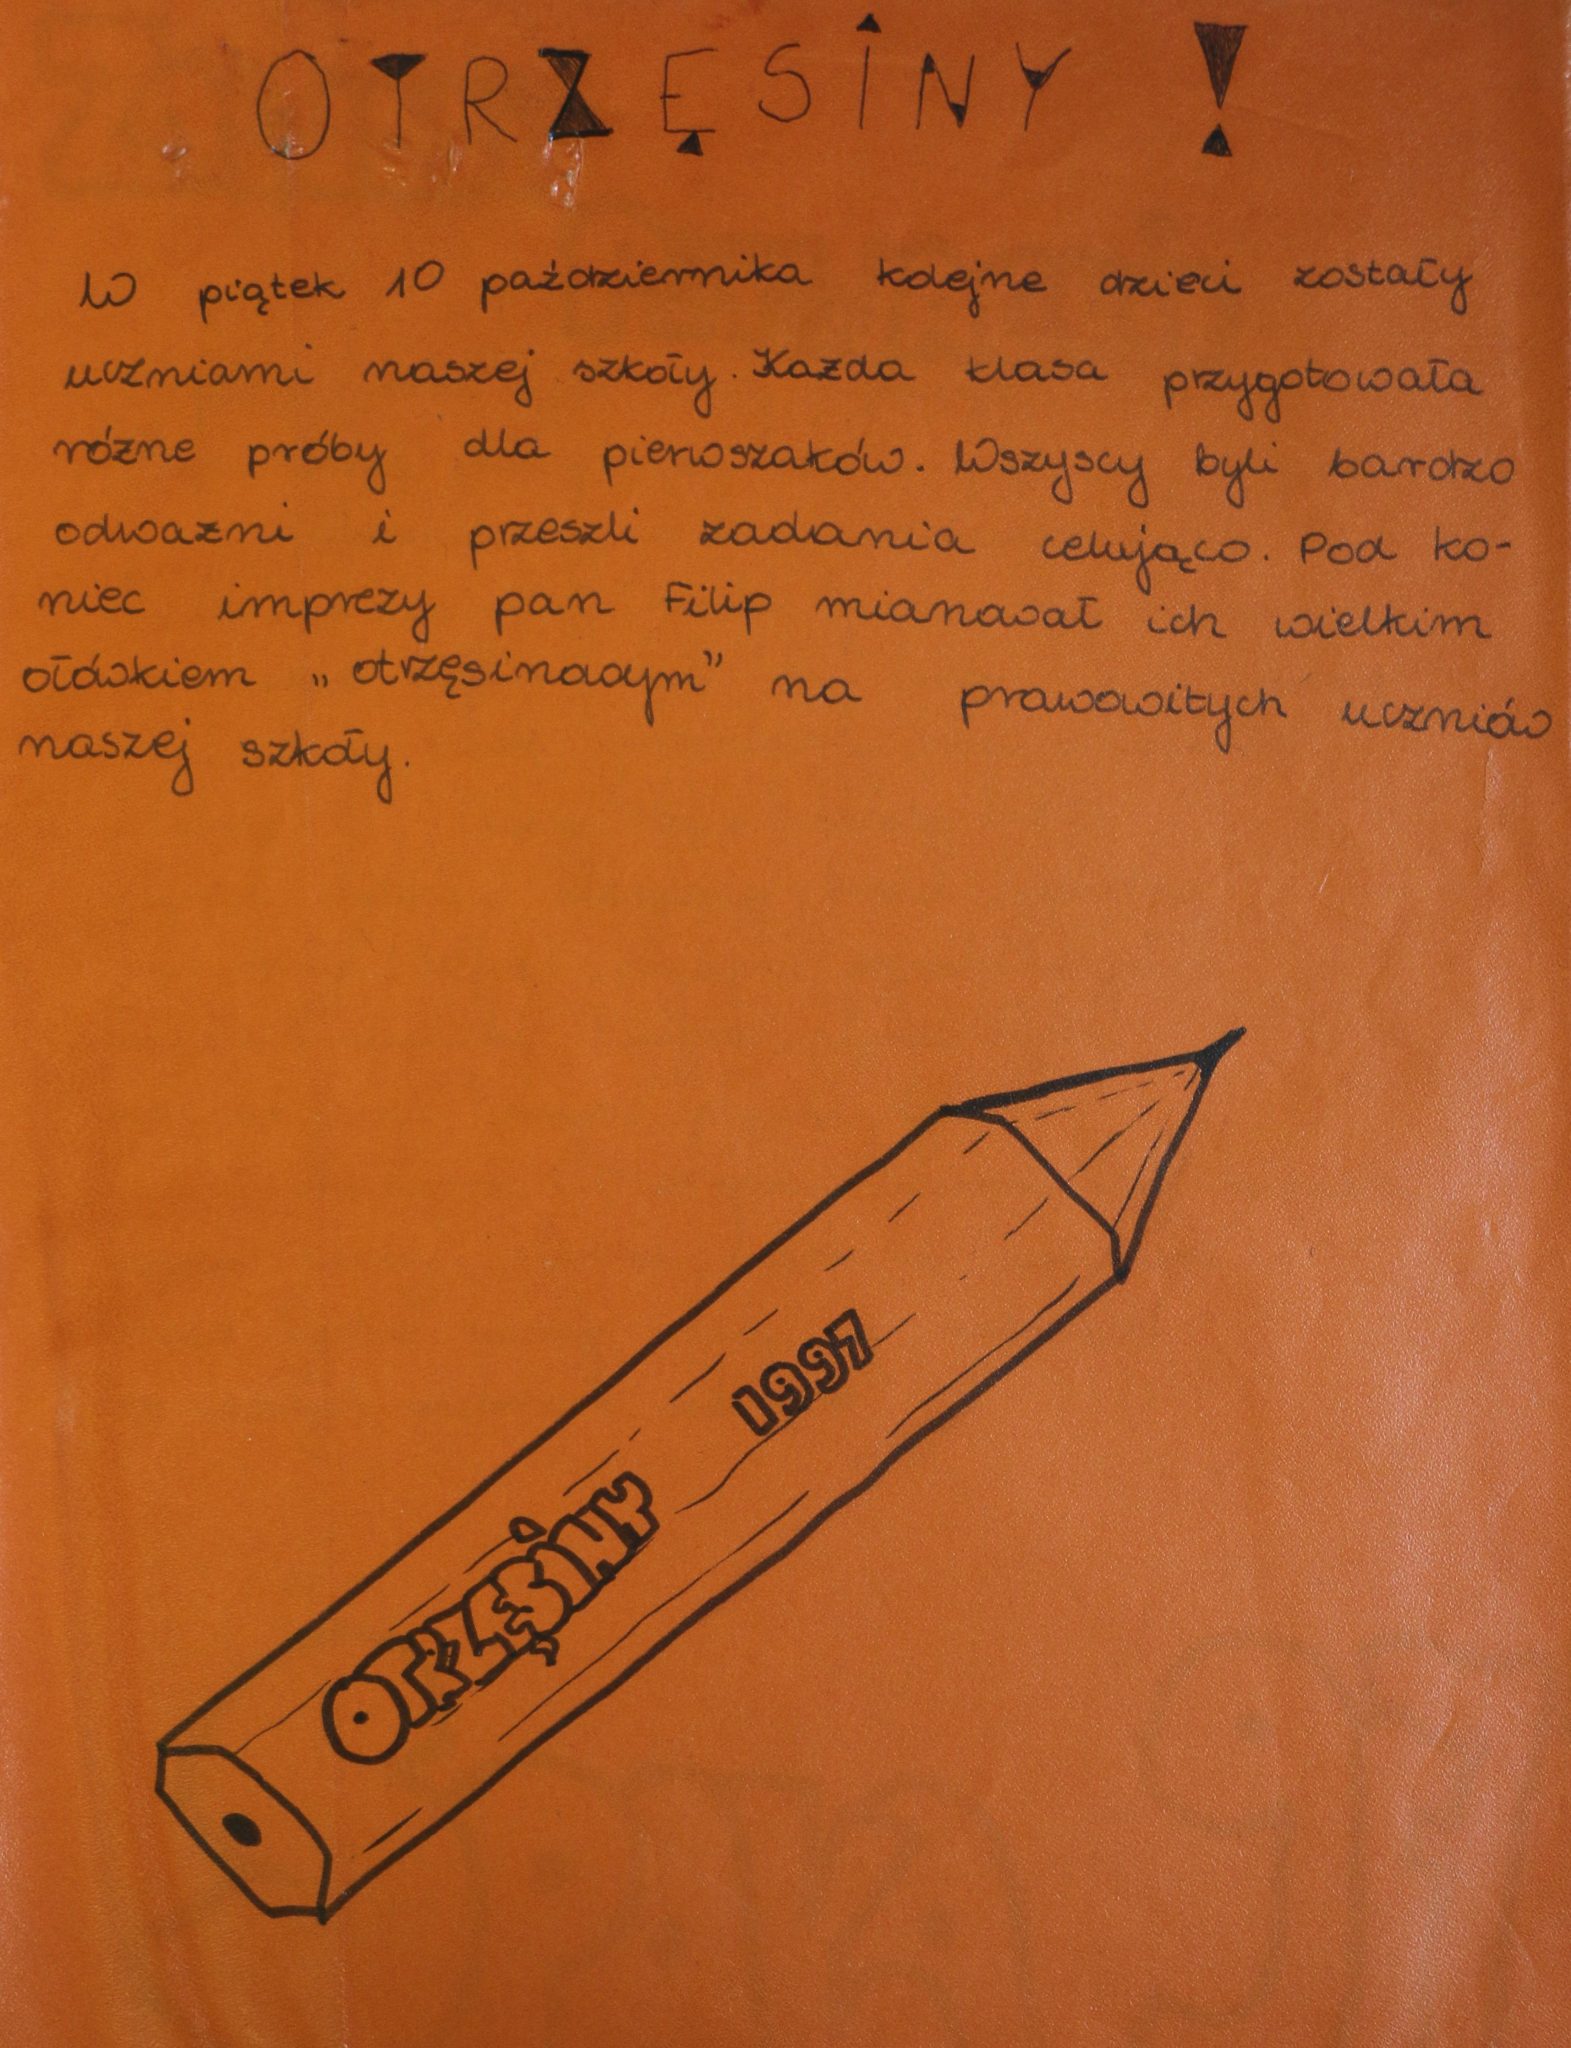 OTRZĘSINY !
W piątek 10 października kolejne dzieci zostały
uczniami naszej szkoły. Każda klasa przygotowała
różne próby dla pierwszaków. Wszyscy byli bardzo
odważni i przeszli zadania celująco. Pod ko-
niec imprezy pan Filip mianował ich wielkim
ołówkiem „otrzęsinowym” na prawowitych uczniów
naszej szkoły.
1997
OTRZĘSINY